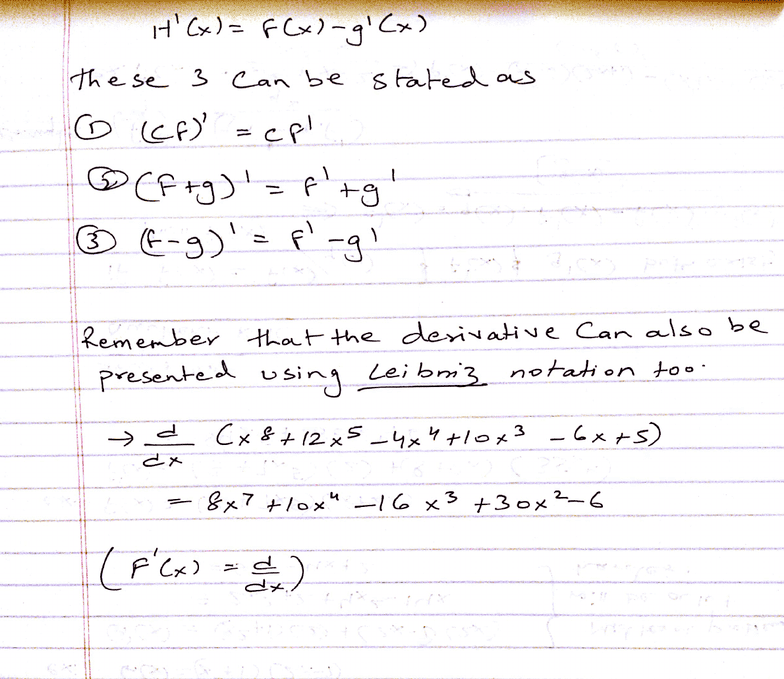 H'(x) = F(x) - g'(x)
these 3 can be stated as
① (cf)' = cf'
② (f+g)' = f'+g'
③ (f-g)' = f'-g'
Remember that the derivative can also be
presented using Leibniz notation too.
→ d/dx (x8+12x5-4x4+10x3-6x+5)
= 8x7+10x4-16x3+30x2-6
(F'(x) = d/dx)